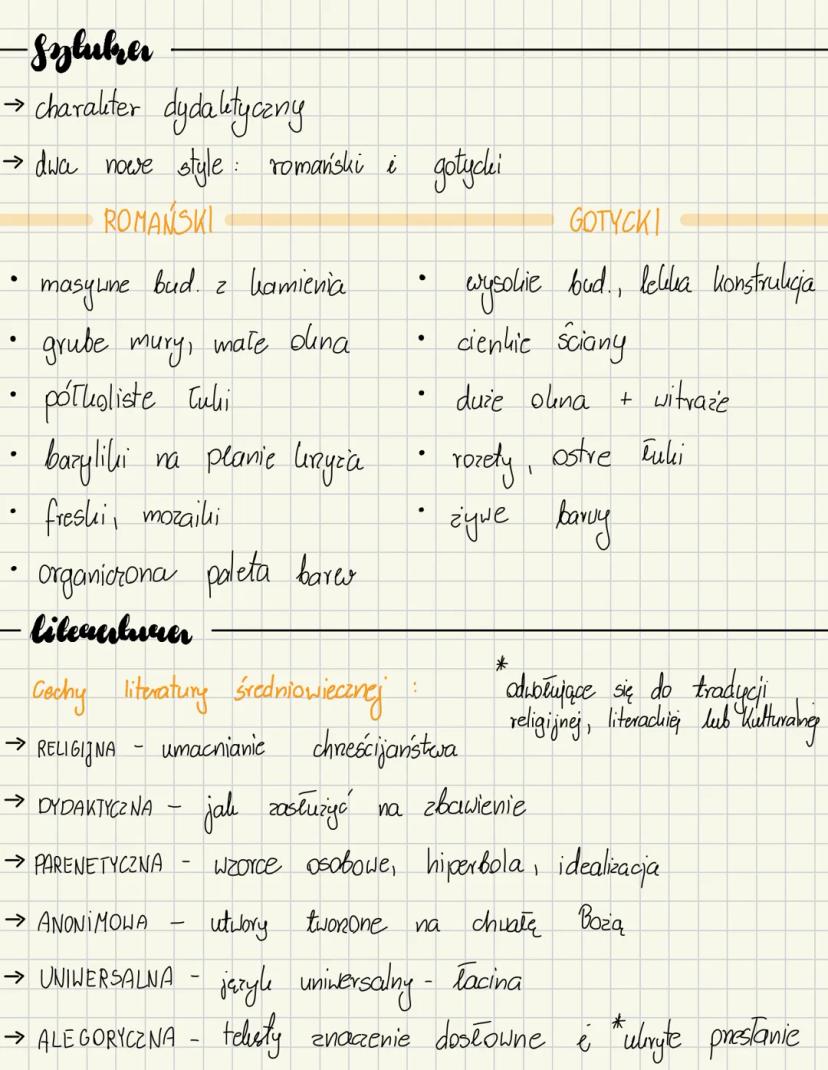 Sztuka
→ charakter dydaktyczny
→ dwa nowe style: romański i gotycki
ROMAŃSKI
• masywne bud. z kamienia
• grube mury, małe okna
• półkoliste łuki
• bazyliki na planie krzyża
• freski, mozaiki
• organiczona paleta barw
GOTYCKI
• wysokie bud., lekka konstrukcja
• cienkie ściany
• duże okna + witraże
• rozety, ostre łuki
• żywe barwy
literatura
Cechy literatury średniowiecznej:
* odwołujące się do tradycji
religijnej, literackiej lub kulturalnej
→ RELIGIJNA - umacnianie chrześcijaństwa
→ DYDAKTYCZNA - jak zasłużyć na zbawienie
→ PARENETYCZNA - wzorce osobowe, hiperbola, idealizacja
→ ANONIMOWA - utwory tworzone na chwałę Bożą
→ UNIWERSALNA - język uniwersalny - łacina
→ ALEGORYCZNA - teksty znaczenie dosłowne i *ukryte przesłanie